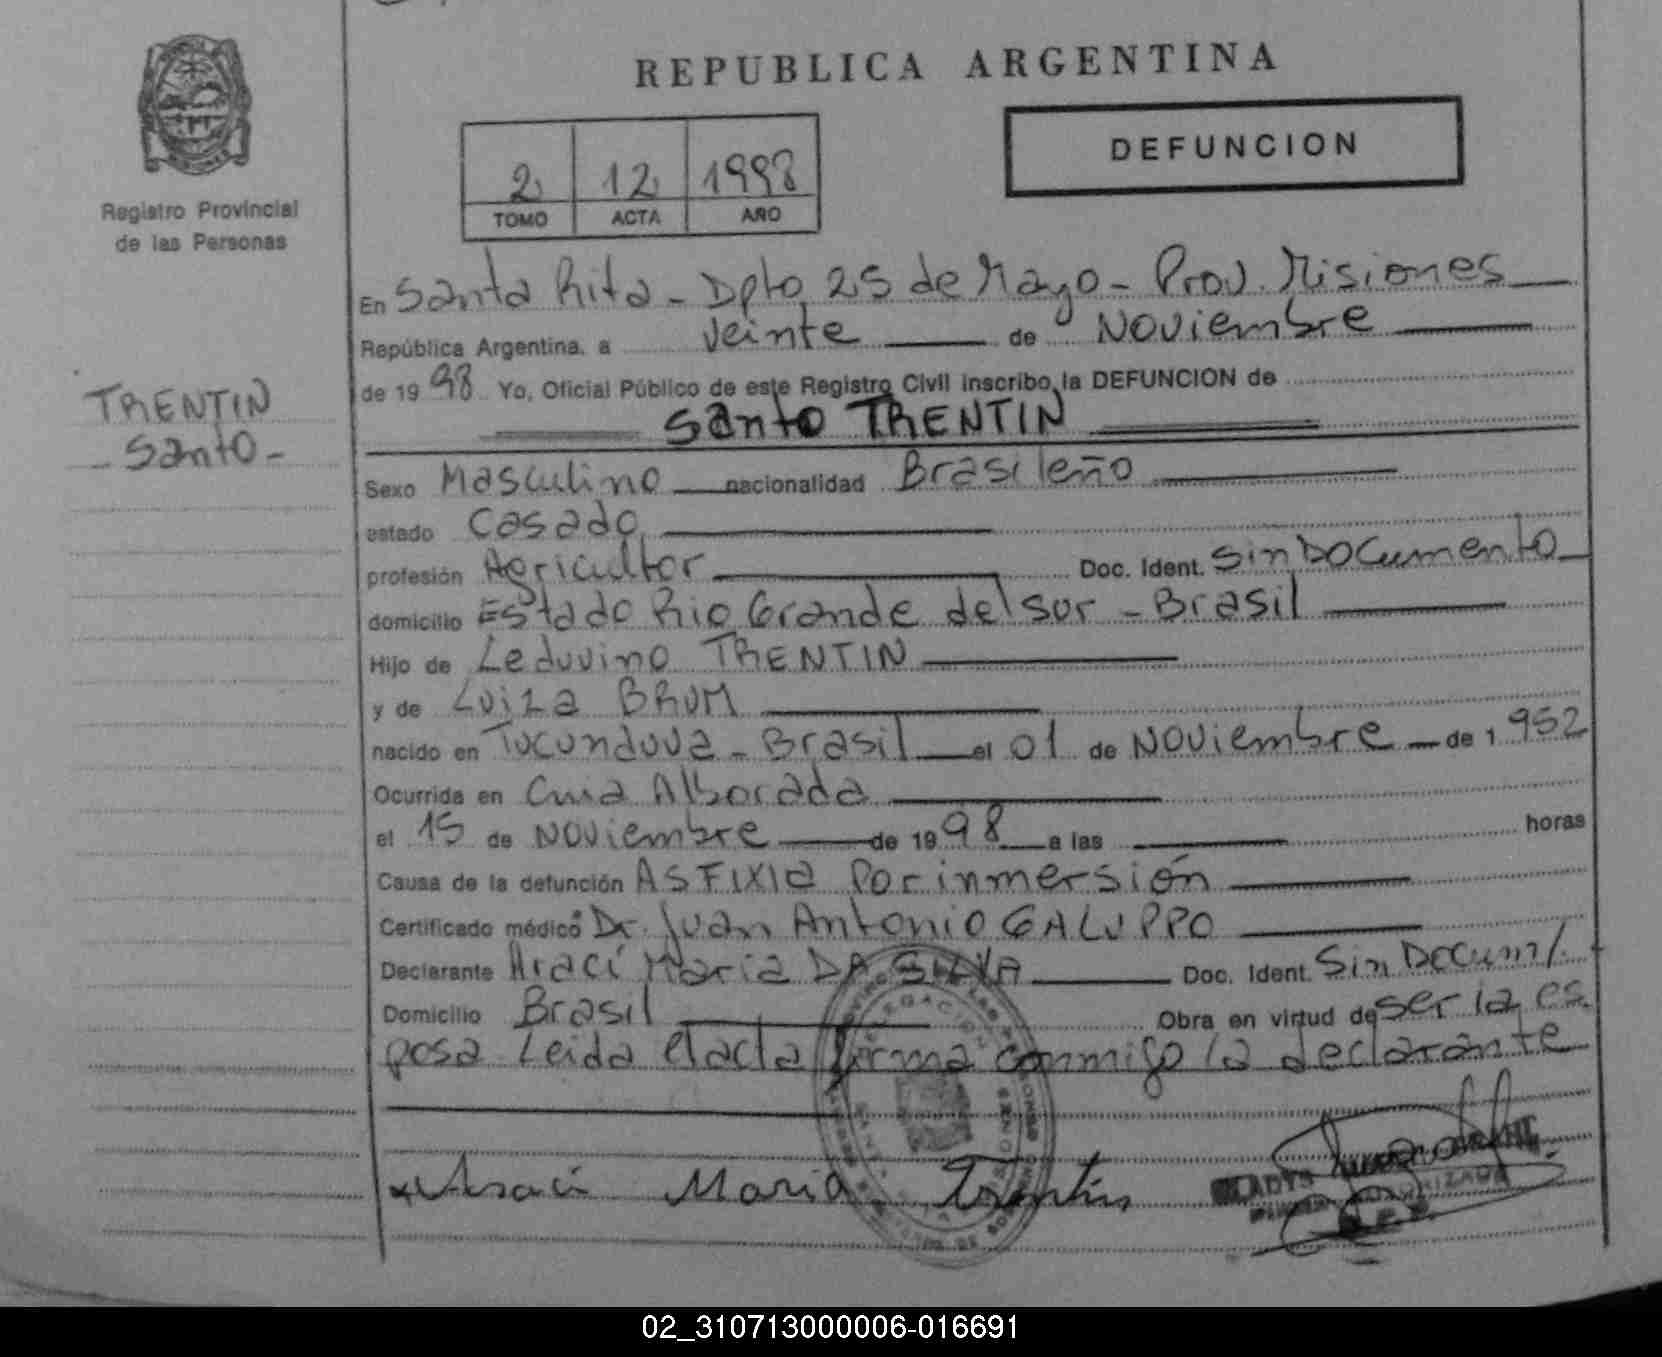 REPUBLICA ARGENTINA
DEFUNCION
2 12 1998
TOMO ACTA AÑO
Registro Provincial
de las Personas
TRENTIN
- Santo -
En Santa Rita - Dpto 25 de Mayo - Prov. Misiones
República Argentina, a veinte de Noviembre
de 19 98 Yo, Oficial Público de este Registro Civil inscribo la DEFUNCION de
Santo TRENTIN
Sexo Masculino nacionalidad Brasileño
estado Casado
profesión Agricultor Doc. Ident. Sin Documento
domicilio Estado Rio Grande del sur - Brasil
Hijo de Leduvino TRENTIN
y de Luiza BRUM
nacido en Tucunduva - Brasil el 01 de Noviembre de 1 952
Ocurrida en Cnia Alborada
el 15 de Noviembre de 19 98 a las horas
Causa de la defunción ASFIXIA Por inmersión
Certificado médico Dr. Juan Antonio GALUPPO
Declarante Aracі Maria DA SILVA Doc. Ident. Sin Docum/.
Domicilio Brasil Obra en virtud de ser la es
posa Leida el acta firma conmigo la declarante
x Araci Maria Trentin
GLADYS
02_310713000006-016691